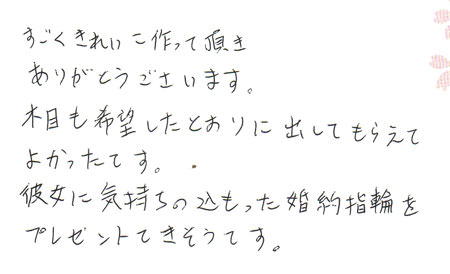 すごくきれいに作って頂き
ありがとうございます。
木目も希望したとおりに出してもらえて
よかったです。
彼女に気持ちの込もった婚約指輪を
プレゼントできそうです。